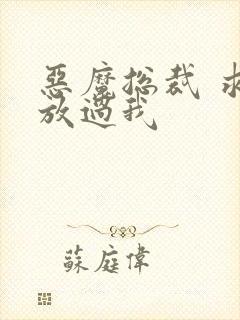 惡魔总裁 求
放过我
蘇庭偉